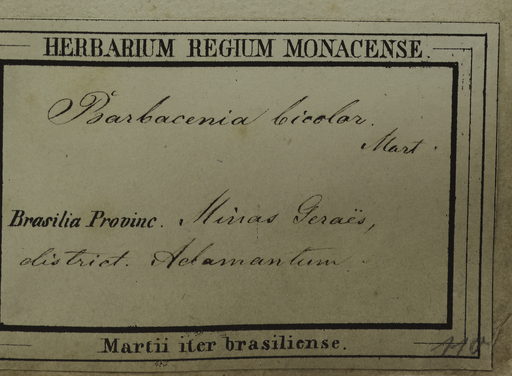 HERBARIUM REGIUM MONACENSE.
Barbacenia bicolor.
Mart.
Brasilia Provinc. Minas Geraës,
district. Adamantum.
Martii iter brasiliense.